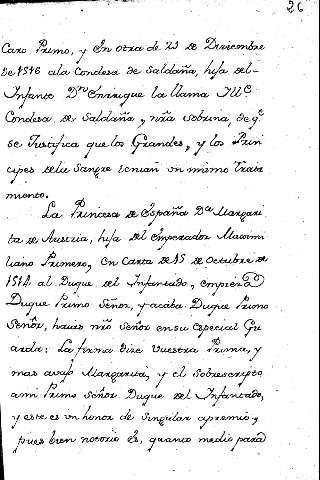 26
Caro Primo, y En otra de 23 de Diciembre
de 1516 ala Condesa de Saldaña, hija del
Infante Dn Enrrique la llama Ille
Condesa de Saldaña, nra sobrina, de q.e
se Justifica que los Grandes, y los Prin
cipes dela Sangre tenian un mismo Trata
miento.
La Princesa de España D.a Margari
ta de Austria, hija del Emperador Maximi
liano Primero, en Carta de 15 de Octubre de
1514 al Duque del Infantado, empieza
Duque Primo Señor, y acaba Duque Primo
Señor, haias nro Señor en su Especial Gu
arda: La firma dice Vuestra Prima, y
mas avajo Margarita, y el Sobrescripto
ami Primo Señor Duque del Infantado,
y este es un honor de Singular apremio,
pues bien notorio es, quanto medio para